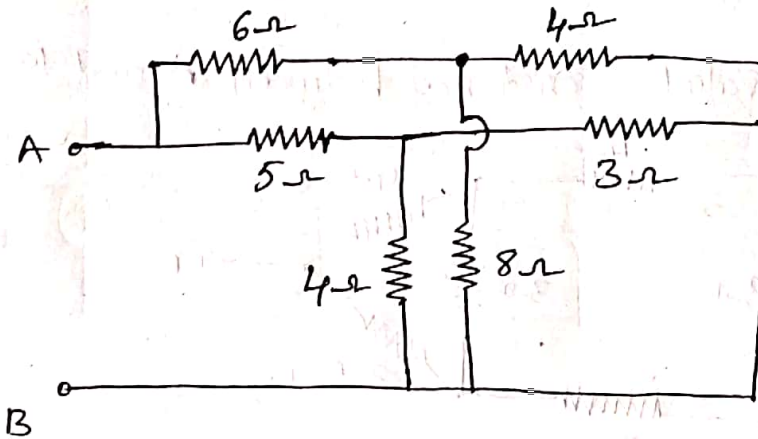 6Ω 4Ω
A 5Ω 3Ω
4Ω 8Ω
B